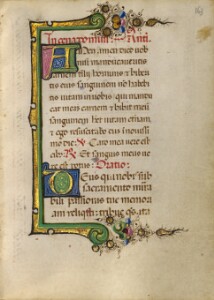 Amen amen dico vob
nisi manducaveritis
carnem filii hominis et bibe
tis eius sanguinem no habebi
tis vitam in vobis qui mandu
cat meam carnem et bibit meu
sanguinem
et ego resuscitabo eu in novissi
mo die Caro mea vere est
cib Et sanguis meus ve
re est potus Oratio
Deus qui nobis sub
sacramento mira
bili passionis tue memori
am reliquisti tribue